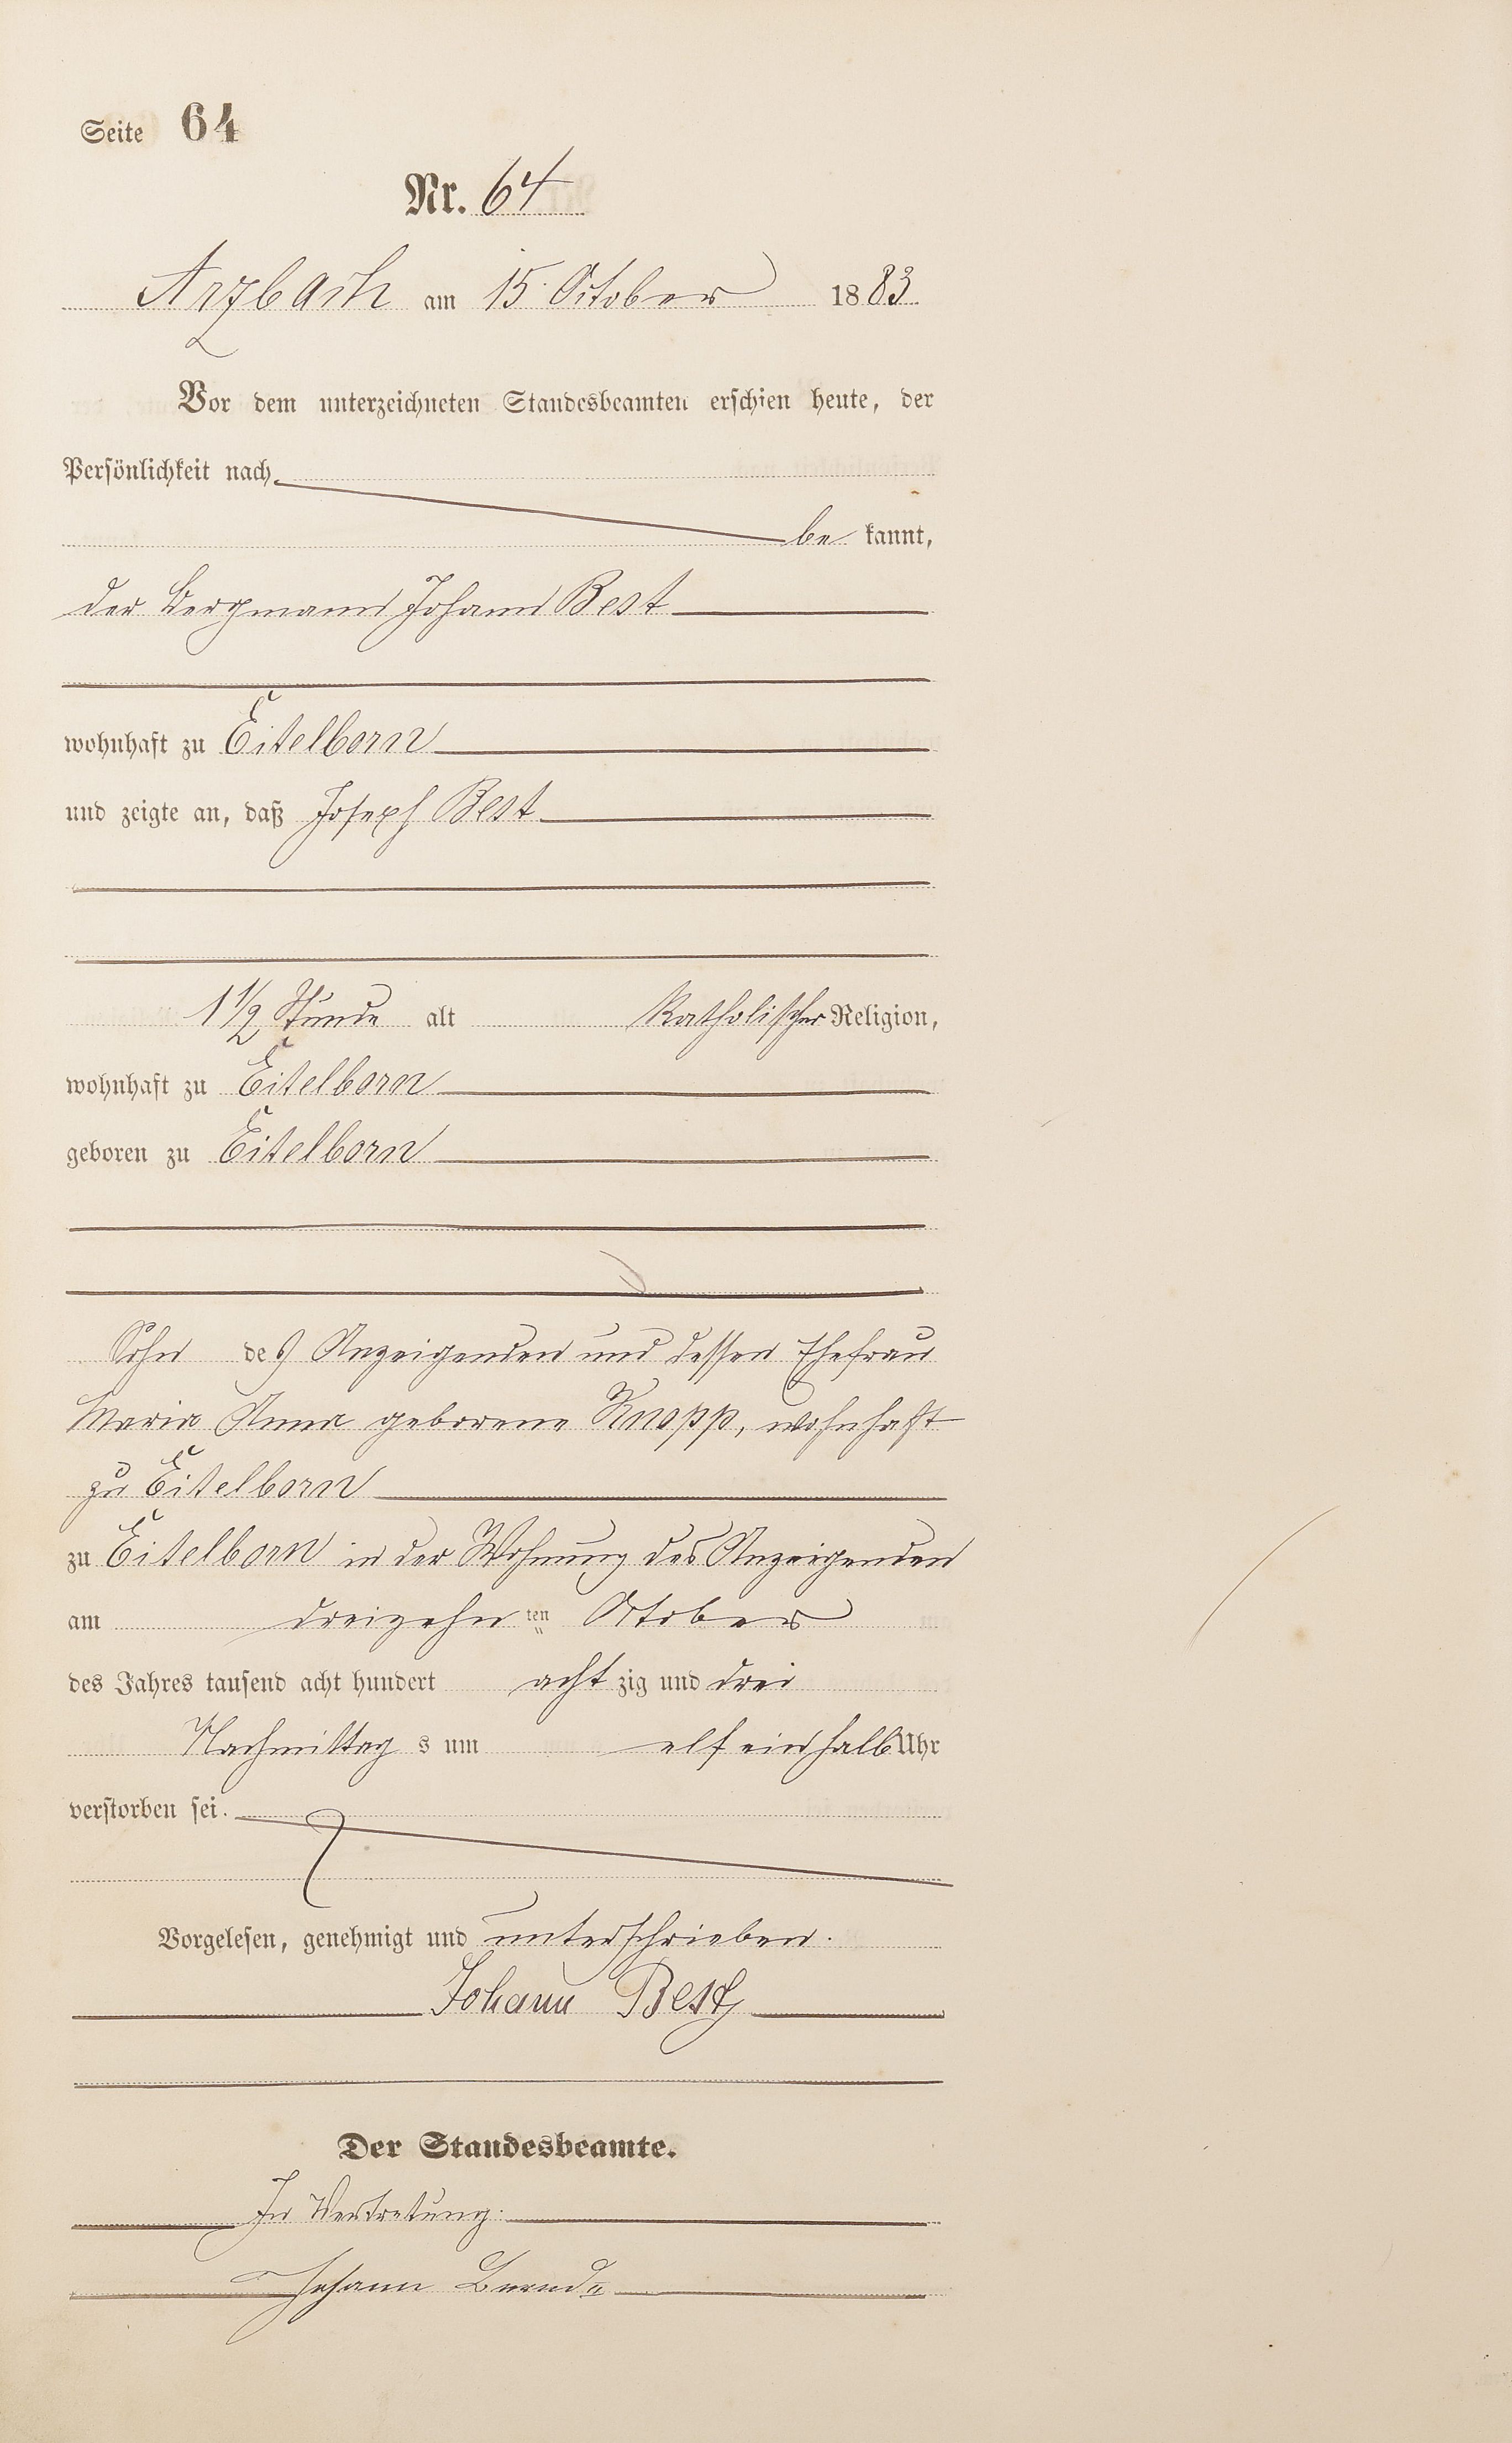 Seite 64
Nr. 64
Arzbach am 15. October 1883.
Vor dem unterzeichneten Standesbeamten erschien heute, der
Persönlichkeit nach
be kannt,
der Bergmann Johann Best
wohnhaft zu Eitelborn
und zeigte an, daß Joseph Best
1 1/2 Stunde alt Katholischer Religion,
wohnhaft zu Eitelborn
geboren zu Eitelborn
Sohn des Anzeigenden und dessen Ehefrau
Maria Anna geborene Knopp, wohnhaft
zu Eitelborn
zu Eitelborn in der Wohnung des Anzeigenden
am dreizehn ten October
des Jahres tausend acht hundert acht zig und drei
Nachmittag s um elf ein halb Uhr
verstorben sei.
Vorgelesen, genehmigt und unterschrieben.
Johann Best
Der Standesbeamte.
In Vertretung:
Johann